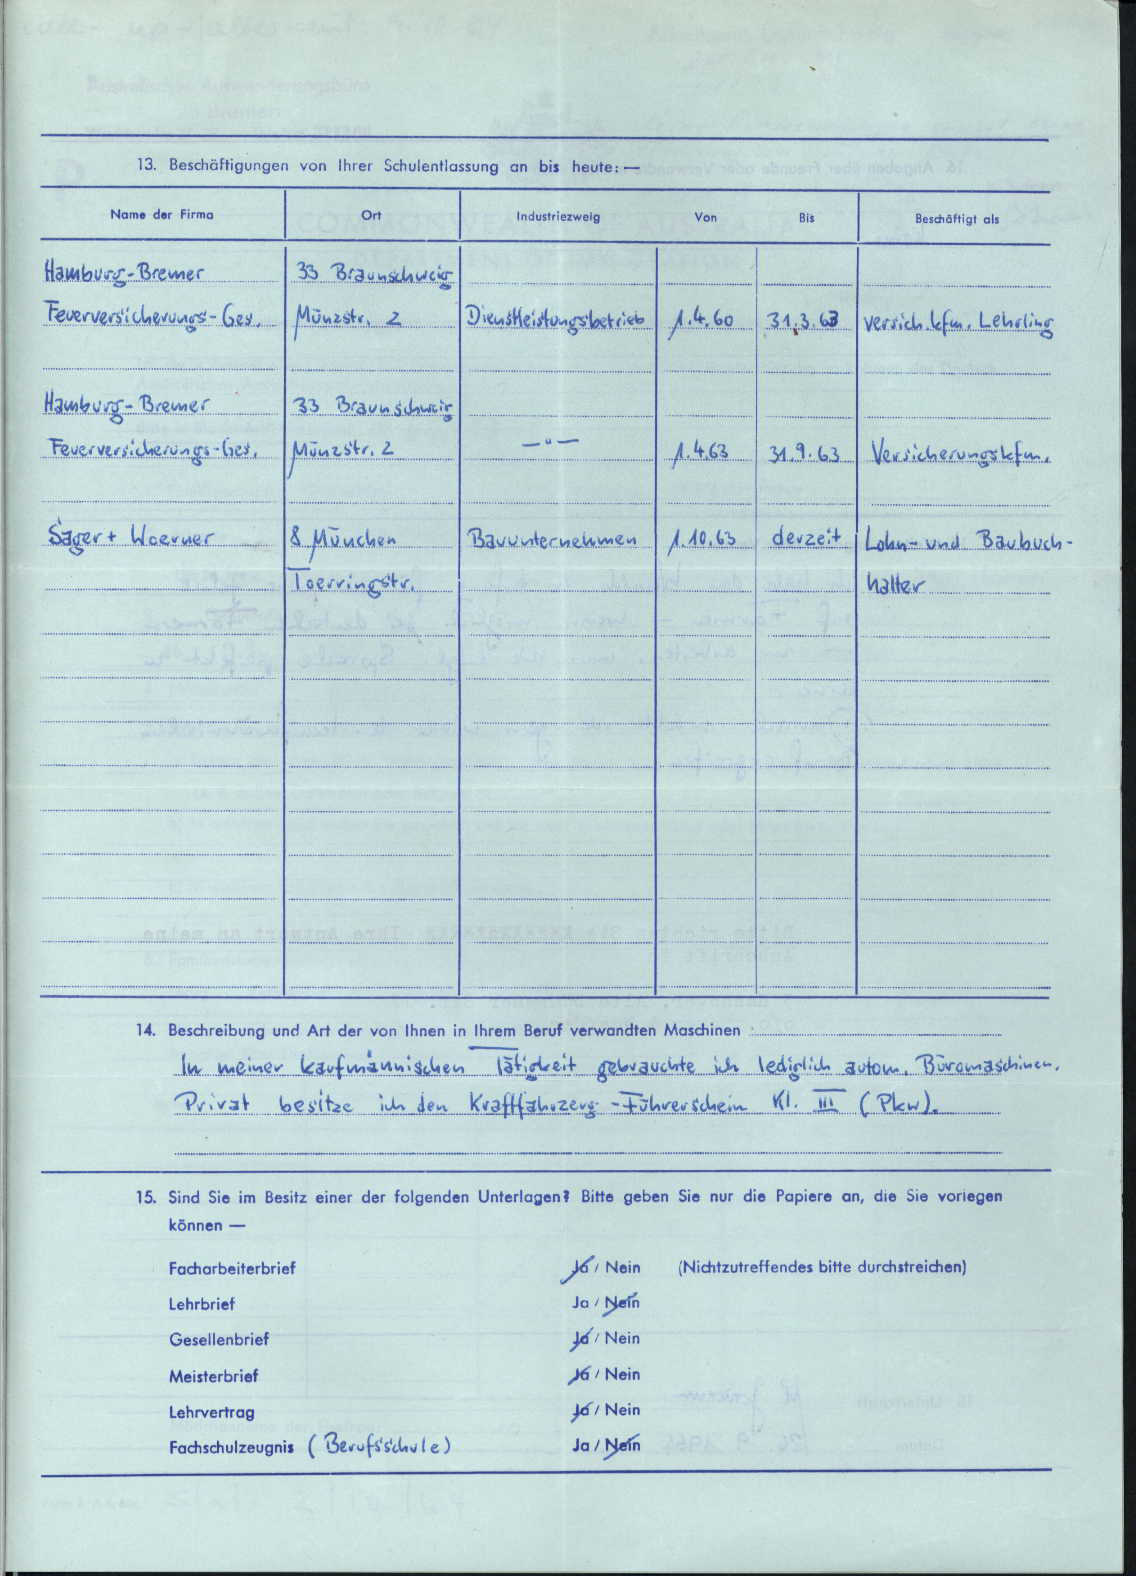 13. Beschäftigungen von Ihrer Schulentlassung an bis heute: —
Name der Firma Ort Industriezweig Von Bis Beschäftigt als
Hamburg-Bremer 33 Braunschweig
Feuerversicherungs-Ges. Münzstr. 2 Dienstleistungsbetrieb 1.4.60 31.3.63 Versich.kfm. Lehrling
Hamburg-Bremer 33 Braunschweig
Feuerversicherungs-Ges. Münzstr. 2 —"— 1.4.63 31.9.63 Versicherungskfm.
Sager + Woerner 8 München Bauunternehmen 1.10.63 derzeit Lohn- und Baubuch-
Toerringstr. halter
14. Beschreibung und Art der von Ihnen in Ihrem Beruf verwandten Maschinen
In meiner kaufmännischen Tätigkeit gebrauchte ich lediglich autom. Büromaschinen.
Privat besitze ich den Kraftfahrzeug-Führerschein Kl. III (Pkw).
15. Sind Sie im Besitz einer der folgenden Unterlagen? Bitte geben Sie nur die Papiere an, die Sie vorlegen
können —
Facharbeiterbrief Ja / Nein (Nichtzutreffendes bitte durchstreichen)
Lehrbrief Ja / Nein
Gesellenbrief Ja / Nein
Meisterbrief Ja / Nein
Lehrvertrag Ja / Nein
Fachschulzeugnis (Berufsschule) Ja / Nein